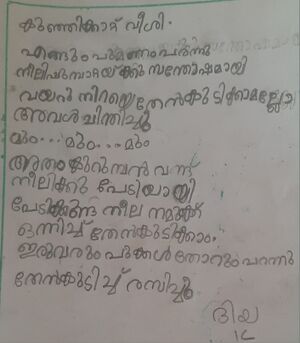 കുഞ്ഞിക്കാറ്റ് വീശി.
എങ്ങും പൂമണം പരന്നു
നീലിപൂമ്പാറ്റയ്ക്ക് സന്തോഷമായി
വയറു നിറയെ തേൻകുടിക്കാമല്ലോ
അവൾ ചിന്തിച്ചു
മൂം... മൂം... മൂം
അതാ കുറുമ്പൻ വന്നു
നീലിക്കു പേടിയായി
പേടിക്കണ്ട നീല നമുക്ക്
ഒന്നിച്ച് തേൻകുടിക്കാം.
ഇരുവരും പൂക്കൾ തോറും പറന്നു
തേൻകുടിച്ച് രസിച്ചു
ദിയ
1C